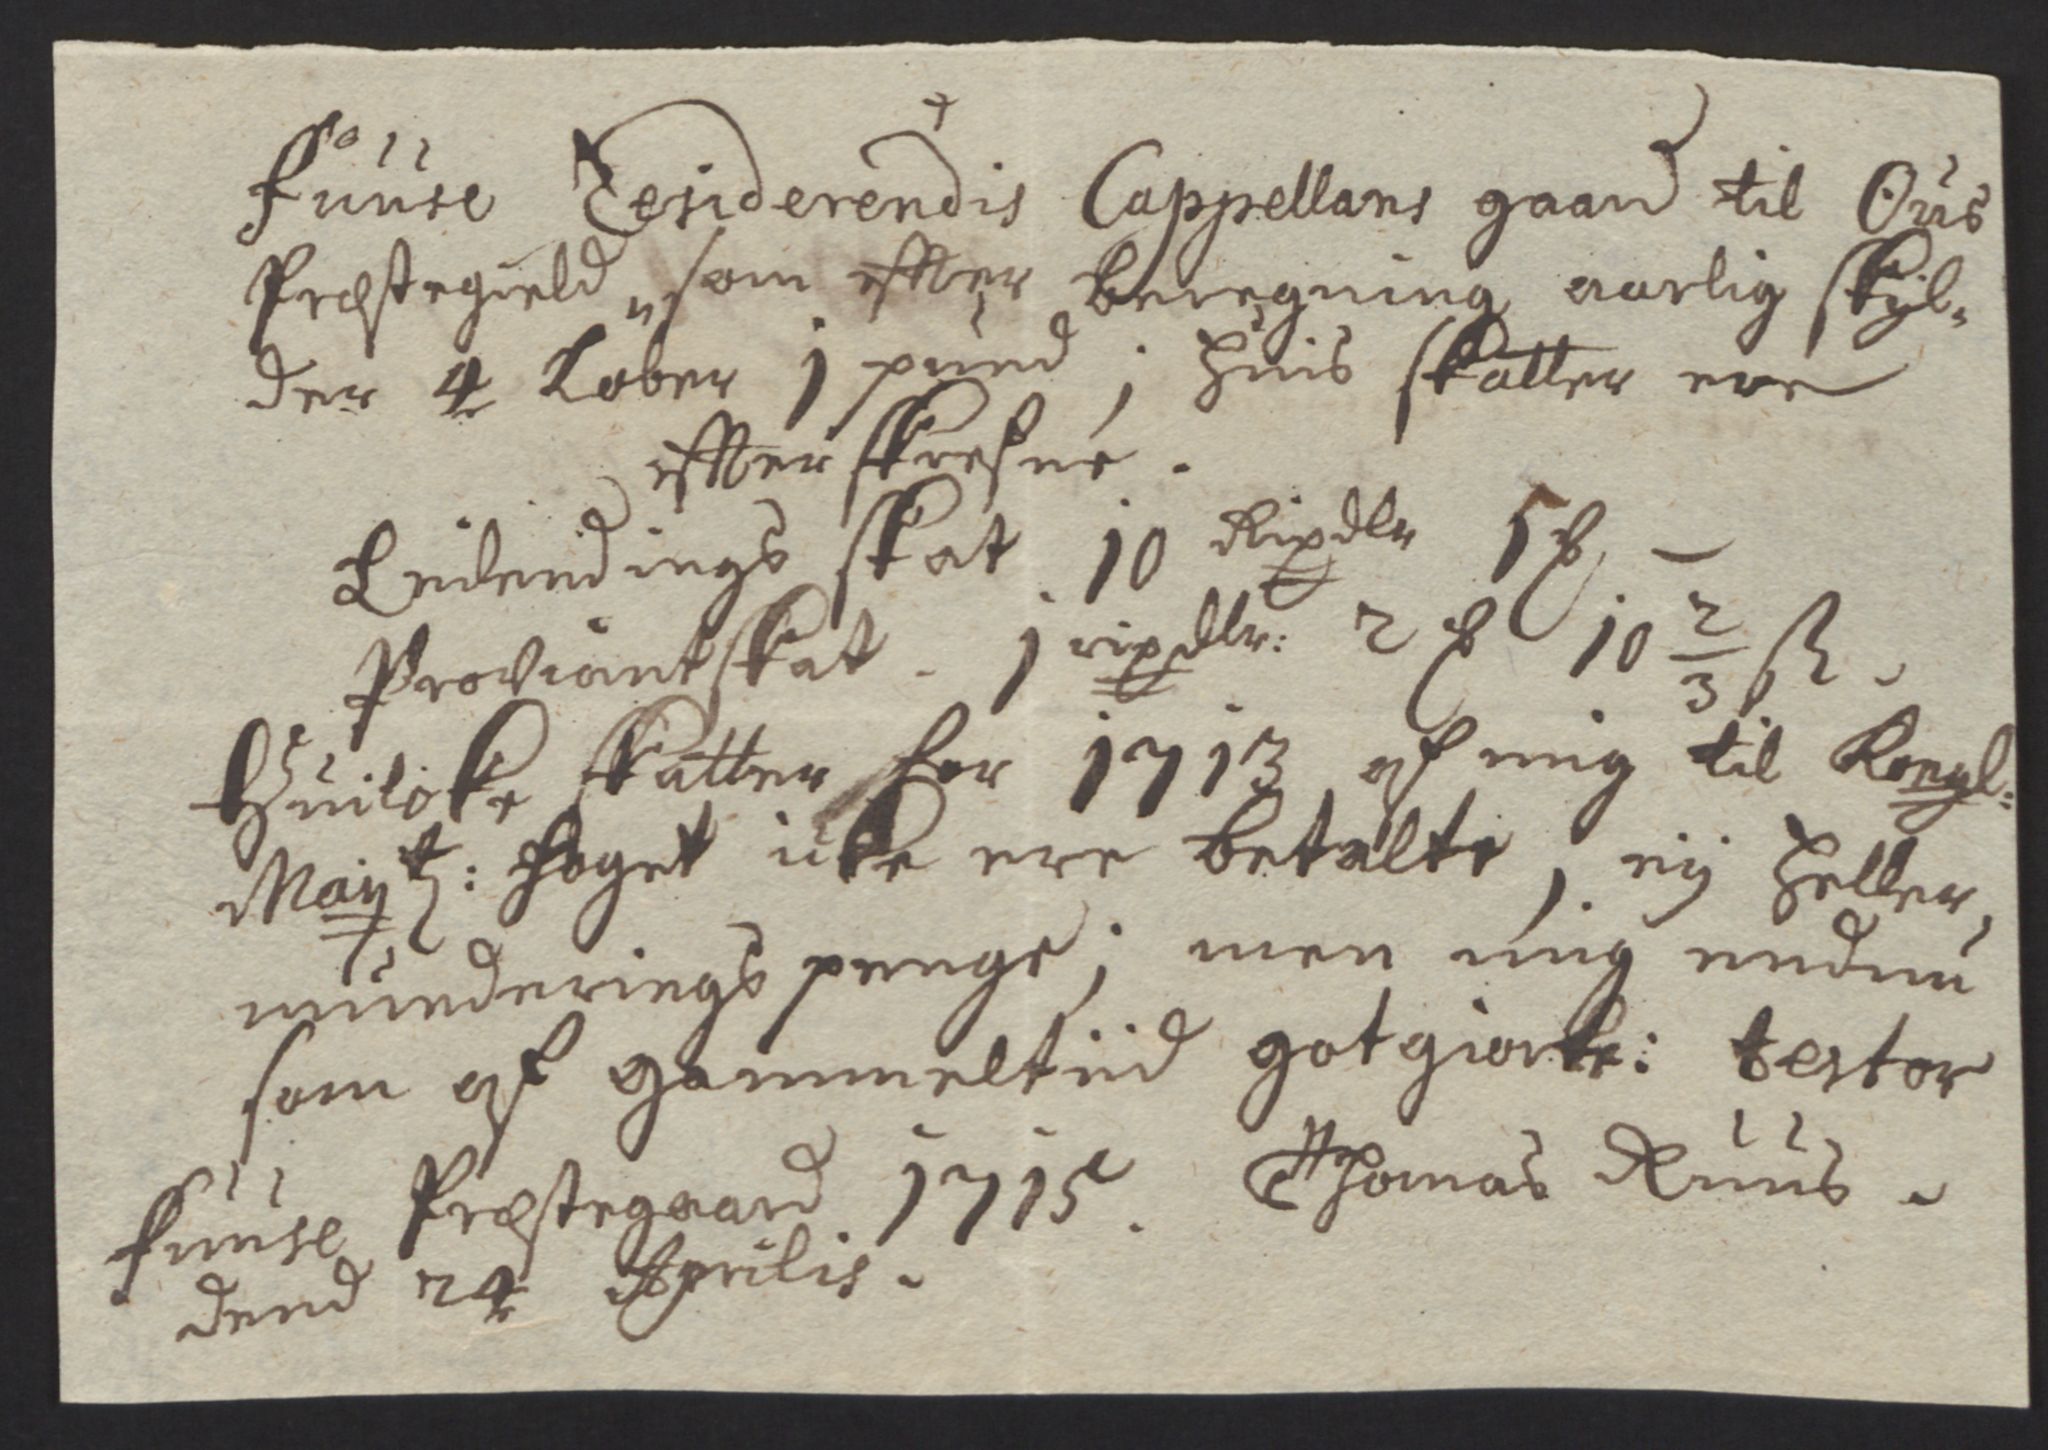 Fuuse Residerendis Cappellans gaard til Ous
Præstegield, som effter beregning aarlig skyl-
der 4 Løber 1 pund; huis skatter ere
effterskrefne.
Leilendings skat 10 Rixdlr 5 ʒ –
Proviantskat. 1 rixdlr: 2 ʒ 10 2/3 ß.
Huilcke skatter for 1713 af mig til Kongl:
Mayts: foget icke ere betalte, eij heller
munderings penge; men mig endnu
som af gammeltiid gotgiorte: testor
Fuuse Præstegaard 1715. Thomas Ruus.
dend 24 Aprilis.